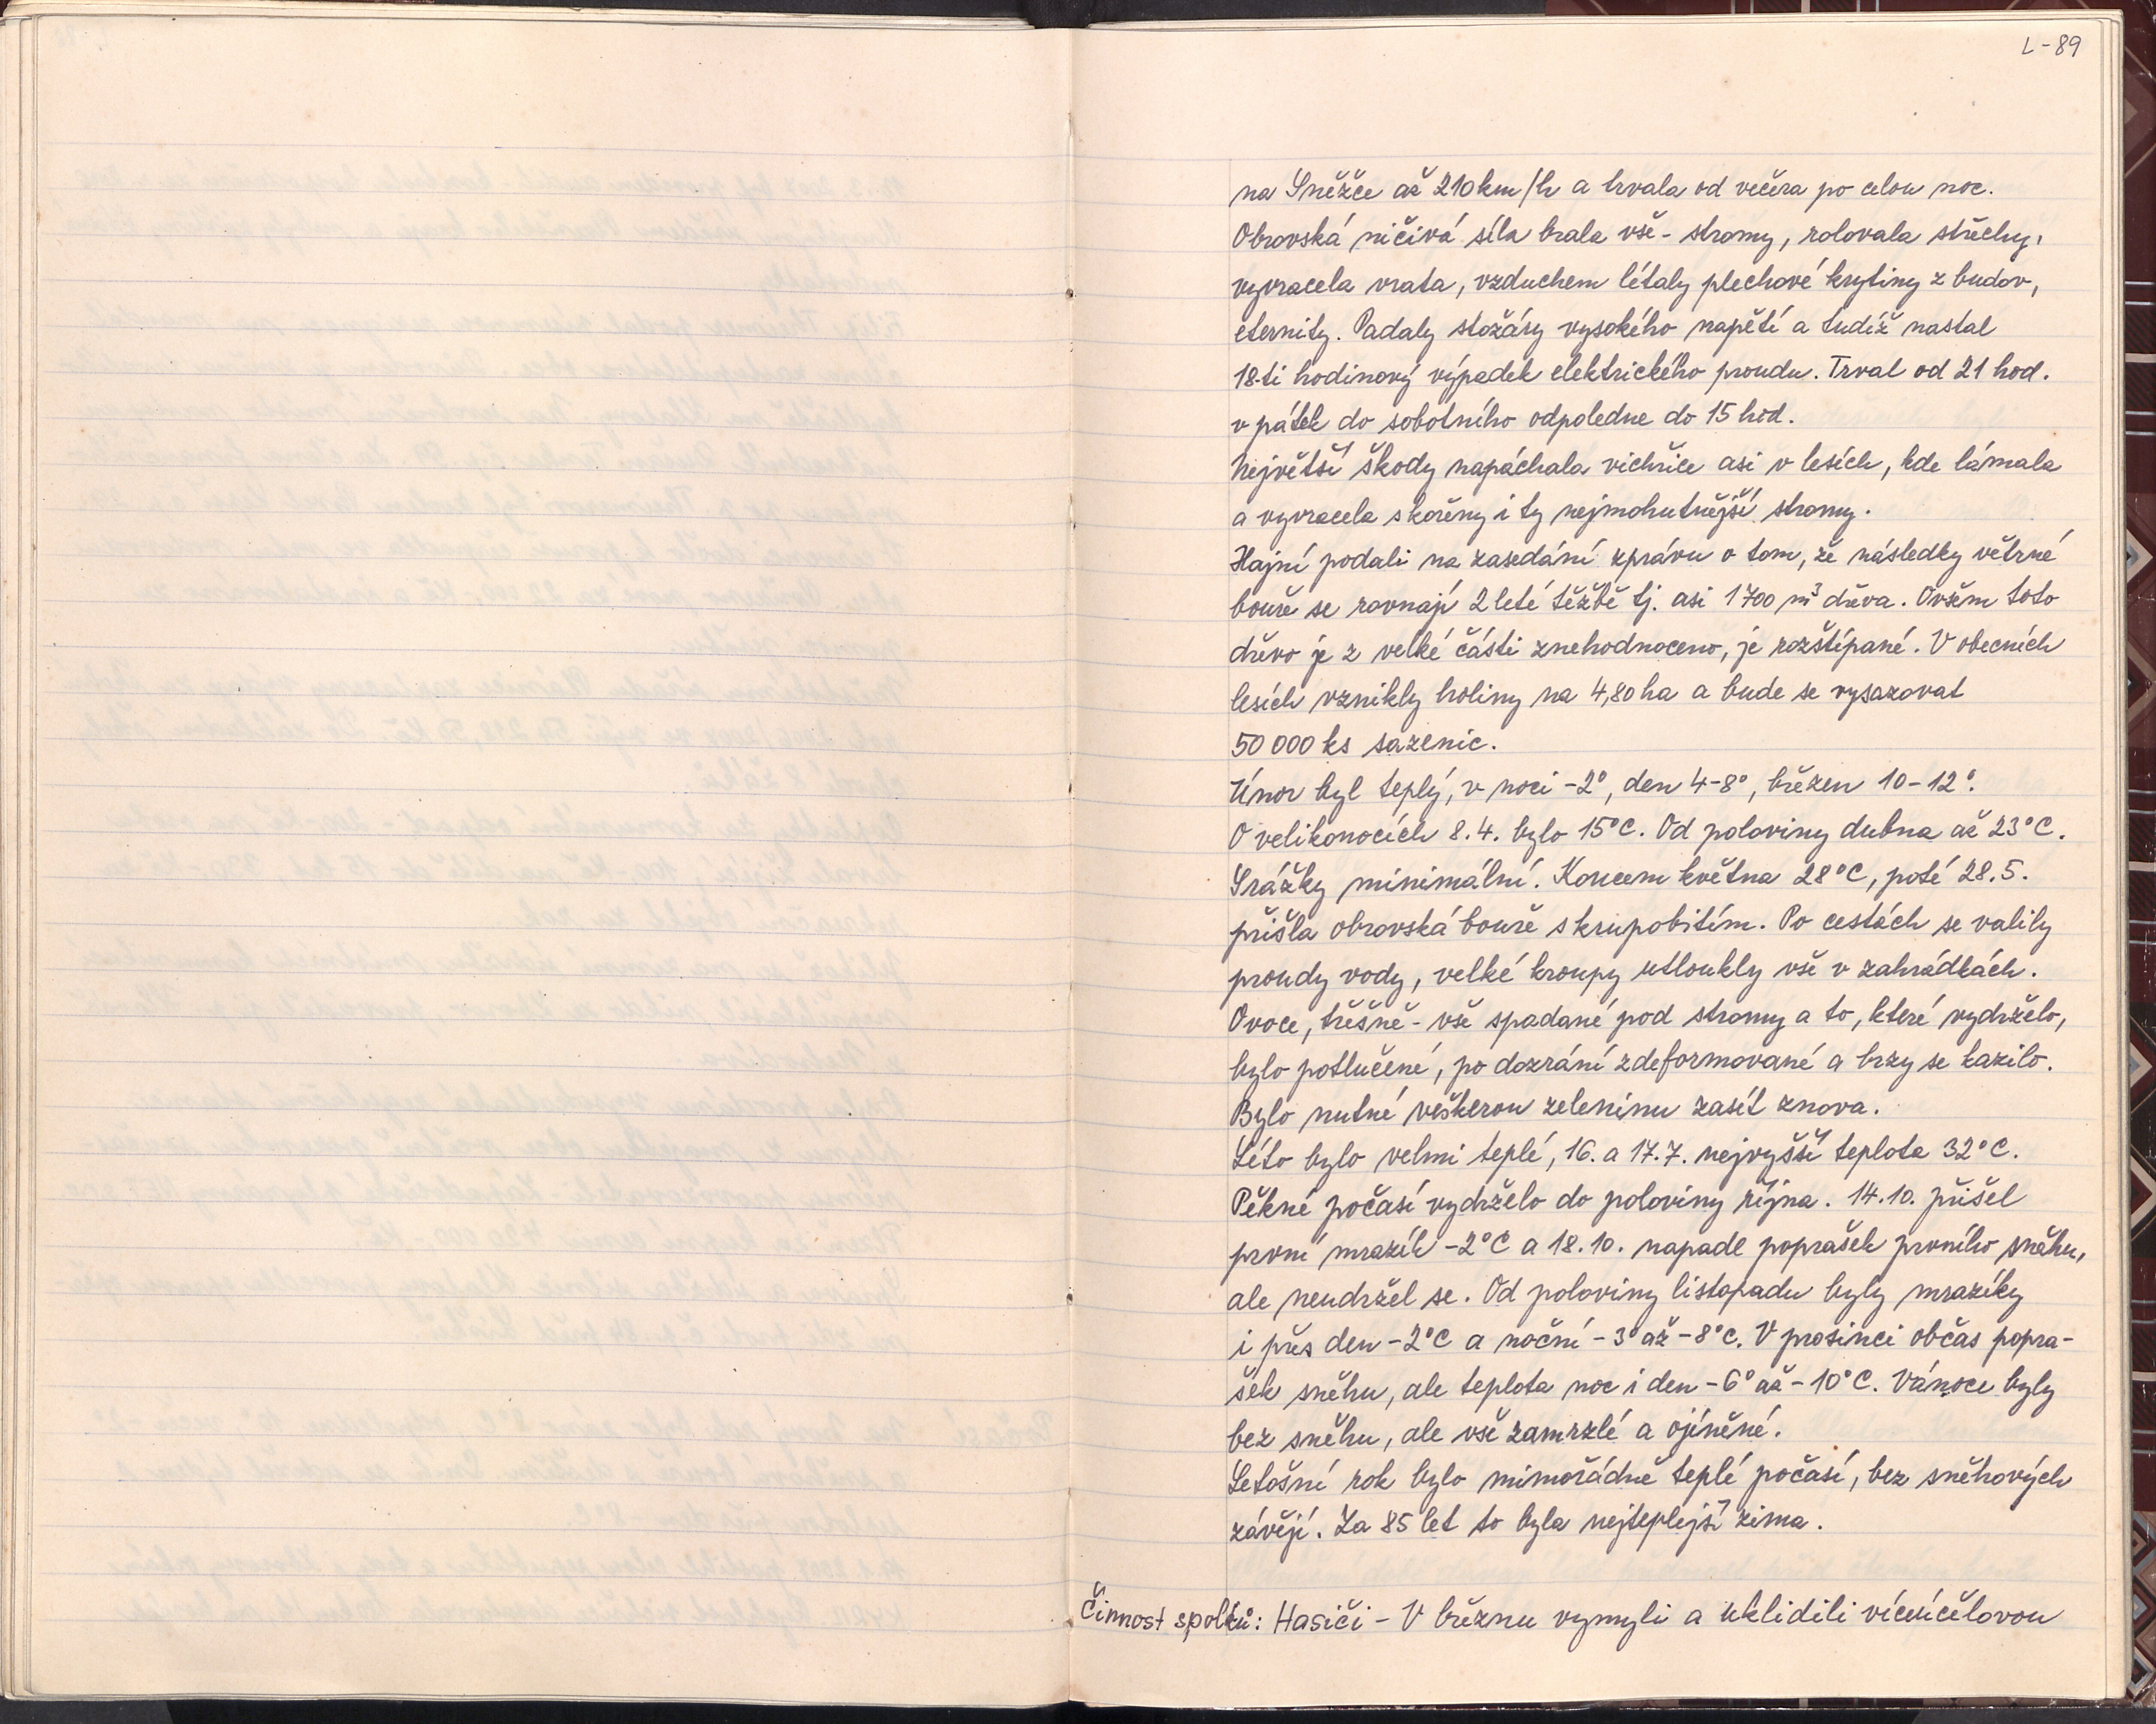 L-89
na Sněžce až 210 km/h a trvala od večera po celou noc.
Obrovská ničivá síla brala vše - stromy, rolovala střechy,
vyvracela vrata, vzduchem létaly plechové krytiny z budov,
eternity. Padaly stožáry vysokého napětí a tudíž nastal
18-ti hodinový výpadek elektrického proudu. Trval od 21 hod.
v pátek do sobotního odpoledne do 15 hod.
Největší škody napáchala vichřice asi v lesích, kde lámala
a vyvracela s kořeny i ty nejmohutnější stromy.
Hajní podali na zasedání zprávu o tom, že následky větrné
bouře se rovnají 2 leté těžbě tj. asi 1 700 m³ dřeva. Ovšem toto
dřevo je z velké části znehodnoceno, je rozštípané. V obecních
lesích vznikly holiny na 4,80 ha a bude se vysazovat
50 000 ks sazenic.
Únor byl teplý, v noci -2°, den 4-8°, březen 10-12°.
O velikonocích 8.4. bylo 15°C. Od poloviny dubna až 23°C.
Srážky minimální. Koncem května 28°C, poté 28.5.
přišla obrovská bouře s krupobitím. Po cestách se valily
proudy vody, velké kroupy utloukly vše v zahrádkách.
Ovoce, třešně - vše spadané pod stromy a to, které vydrželo,
bylo potlučené, po dozrání zdeformované a brzy se kazilo.
Bylo nutné veškerou zeleninu zasít znova.
Léto bylo velmi teplé, 16. a 17.7. nejvyšší teplota 32°C.
Pěkné počasí vydrželo do poloviny října. 14.10. přišel
první mrazík -2°C a 18.10. napadl poprašek prvního sněhu,
ale neudržel se. Od poloviny listopadu byly mrazíky
i přes den -2°C a noční -3° až -8°C. V prosinci občas popra-
šek sněhu, ale teplota noc i den -6° až -10°C. Vánoce byly
bez sněhu, ale vše zamrzlé a ojíněné.
Letošní rok bylo mimořádně teplé počasí, bez sněhových
závějí. Za 85 let to byla nejteplejší zima.
Činnost spolků: Hasiči - V březnu vymyli a uklidili víceúčelovou